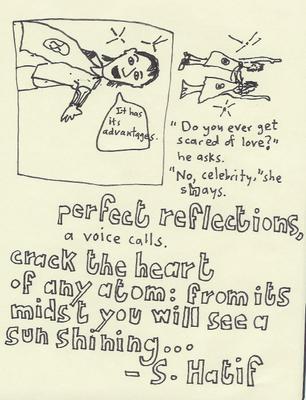 It has
its
advantages.
"Do you ever get
scared of love?"
he asks.
"No, celebrity," she
says.
perfect reflections,
a voice calls.
crack the heart
of any atom: from its
midst you will see a
sun shining...
- S. Hatif